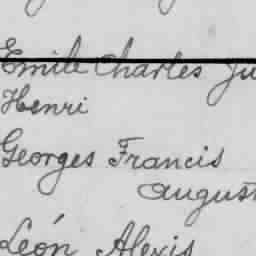 Emile Charles Ju
Henri
Georges Francis
August
León Alexis